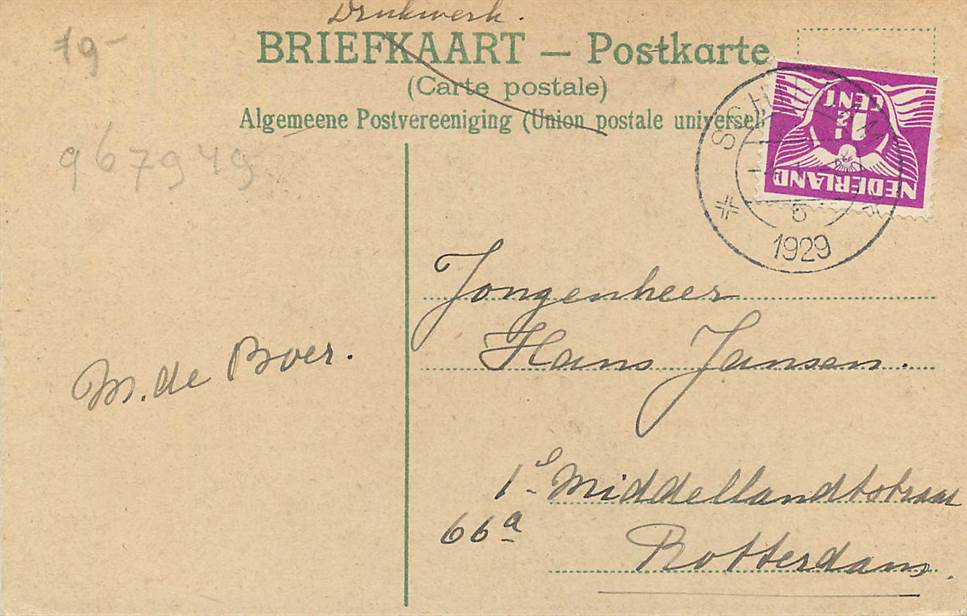 Drukwerk.
79-
BRIEFKAART — Postkarte
(Carte postale)
Algemeene Postvereeniging (Union postale universel
967949
NEDERLAND
1½
CENT
5
1929
Jongenheer
Hans Jansen.
M. de Boer.
1e Middellandtstraat
66a
Rotterdam.